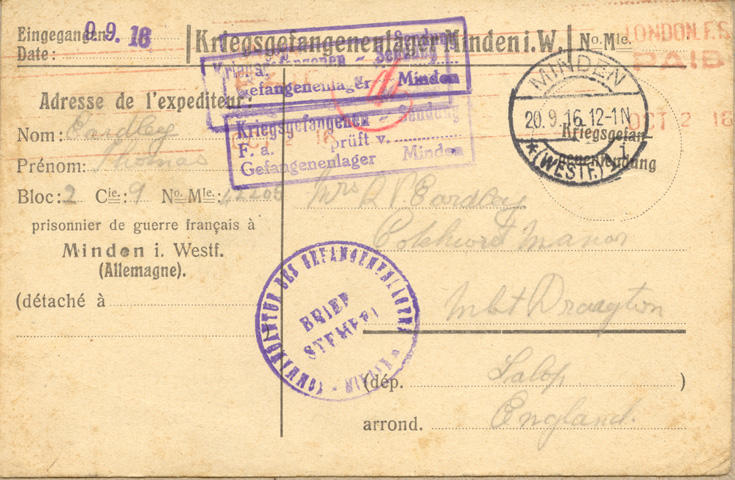 Eingegangen 9.9.16
Date:
Kriegsgefangenenlager Minden i. W.
No. Mle.
LONDON F.S
PAID
OCT 2 16
Sendung
Gefangenenlager Minden
Kriegsgefangenen - Sendung
F. a. prüft v.
Gefangenenlager Minden
MINDEN
20.9.16.12-1N
*(WESTF.)1
Kriegsgefan
genensendung
Adresse de l'expediteur:
Nom: Eardley
Prénom: Thomas
Bloc: 2 Cie: 9 No. Mle:
prisonnier de guerre français à
Minden i. Westf.
(Allemagne).
(détaché à
Mrs R P Eardley
Manor
Mkt Drayton
(dép. Salop )
arrond. England.
KOMMANDANTUR DES GEFANGENENLAGERS
BRIEF
STEMPEL